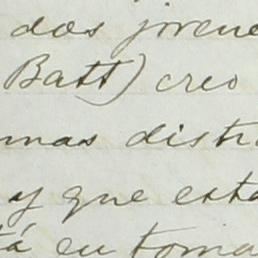 dos jovene
Batt) creo
mas distr
y que esta
tá en toma